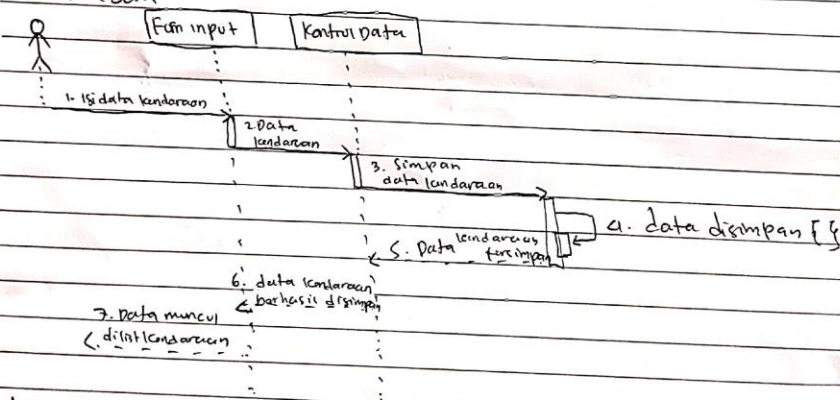 Form input
Kontrol Data
1. Isi data kendaraan
2. Data
kendaraan
3. Simpan
data kendaraan
4. data disimpan { }
5. Data kendaraan
tersimpan
6. data kendaraan
berhasil disimpan
7. Data muncul
dilist kendaraan